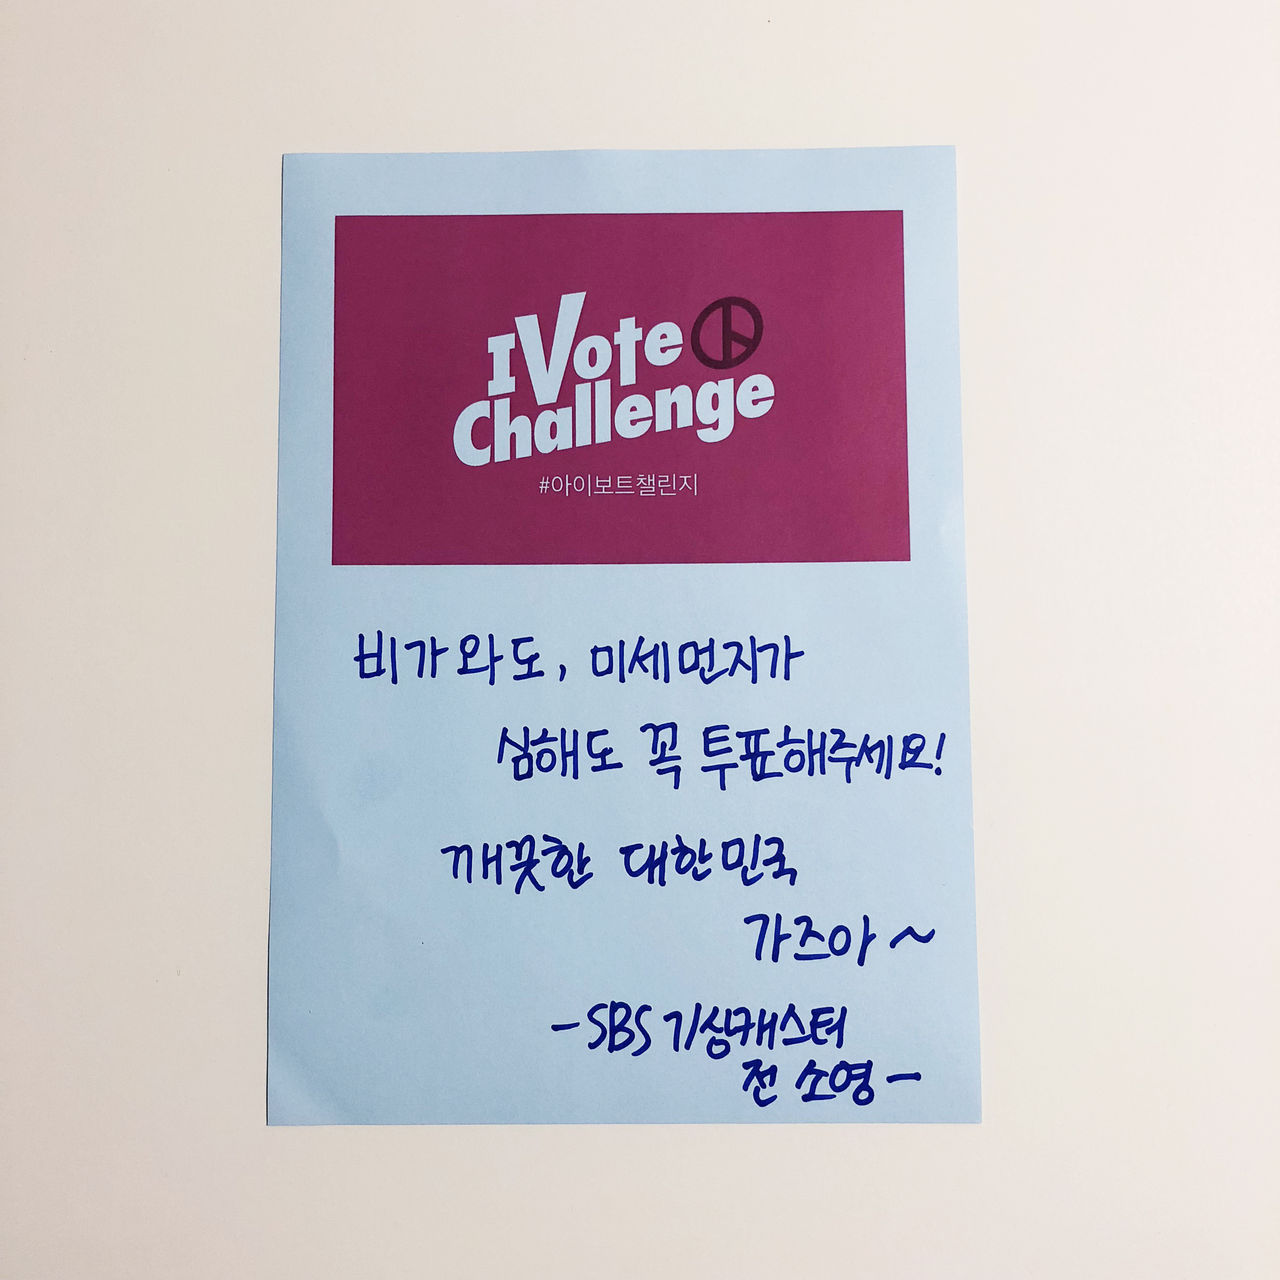 I Vote
Challenge
#아이보트챌린지
비가와도, 미세먼지가
심해도 꼭 투표해주세요!
깨끗한 대한민국
가즈아~
-SBS 기상캐스터
전소영-